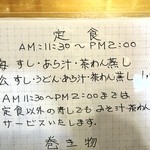 定食
AM:11:30〜PM2:00
すし・あら汁・茶わん蒸し
すし・うどん・あら汁・茶わん蒸し
AM11:30〜PM2:00までは
定食以外の寿しでもみそ汁・茶わん
サービスいたします。
巻き物